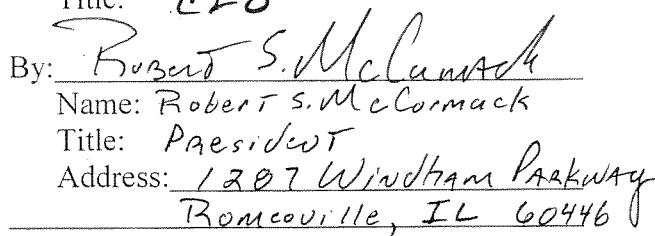 Title: CEO
By: Robert S. McCormack
Name: Robert S. McCormack
Title: President
Address: 1287 Windham Parkway
Romeoville, IL 60446